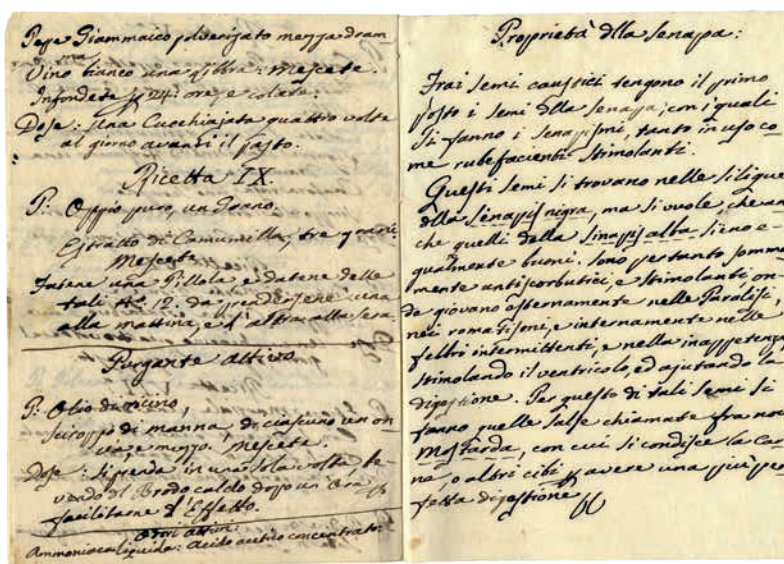 Pepe Giammaico polverizato mezza dram-
ma
Vino bianco una libbra: Mescete.
Infondete p 24: ore, e colate.
Dose: Una Cucchiajata quattro volte
al giorno avanti il pasto.
Ricetta IX.
P: Oppio puro, un Grano.
Estratto di Camumilla, tre grani.
Mescete
Fatene una Pillola, e datene delle
tali No. 12. da prendersene una
alla mattina, e l'altra alla sera.
Purgante attivo
P: Olio di ricino,
sciroppo di manna, di ciascuno un on-
cia e mezzo. Mescete.
Dose: Si prenda in una sola volta, be-
vendo il Brodo caldo dopo un Ora p
facilitarne l'Effetto.
Odori attivi:
Ammoniaca liquida: Acido acetico concentrato:
Proprietà dlla Senapa:
Frai semi caustici tengono il primo
posto i semi dlla Senapa, con i quali
si fanno i Senapismi, tanto in uso co-
me rubefacienti Stimolanti.
Questi semi si trovano nelle silique
dlla Sinapis nigra, ma si vuole, che an-
che quelli della Sinapis alba sieno e-
gualmente buoni. Sono pertanto somma-
mente antiscorbutici, e Stimolanti on-
de giovano esternamente nelle Paralisi,
nei romatismi, e internamente nelle
febbri intermittenti, e nella inappetenza
Stimolando il ventricolo, ed ajutando la
digestione. Per questo di tali semi si
fanno quelle Salse chiamate fra noi
Mostarda, con cui si condisce la Car-
ne, o altri cibi p avere una più per-
fetta digestione